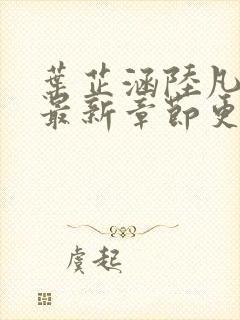 葉芷涵陸凡
最新章節更
虞起